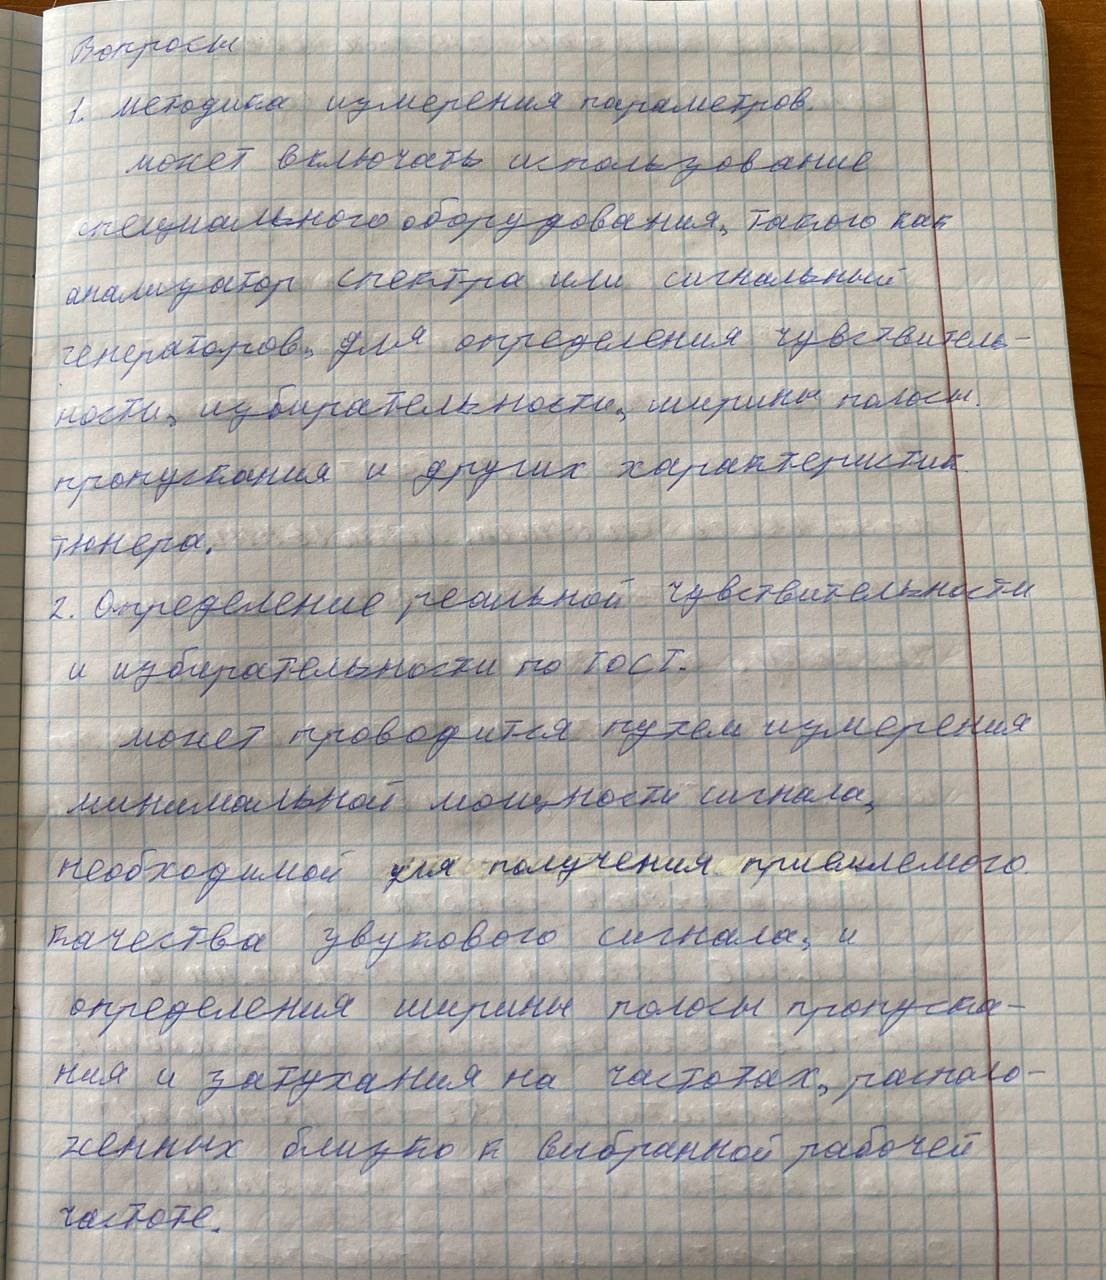 Вопросы
1. методика измерения параметров.
может включать использование
специального оборудования, такого как
анализатор спектра или сигнальный
генераторов, для определения чувствитель-
ности, избирательности, ширины полосы.
пропускания и других характеристик.
тюнера.
2. Определение реальной чувствительности
и избирательности по ГОСТ.
может проводится путем измерения
минимальной мощности сигнала,
необходимой для получения приемлемого.
качества звукового сигнала, и
определения ширины полосы пропуска-
ния и затухания на частотах, располо-
женных близко к выбранной рабочей
частоте.